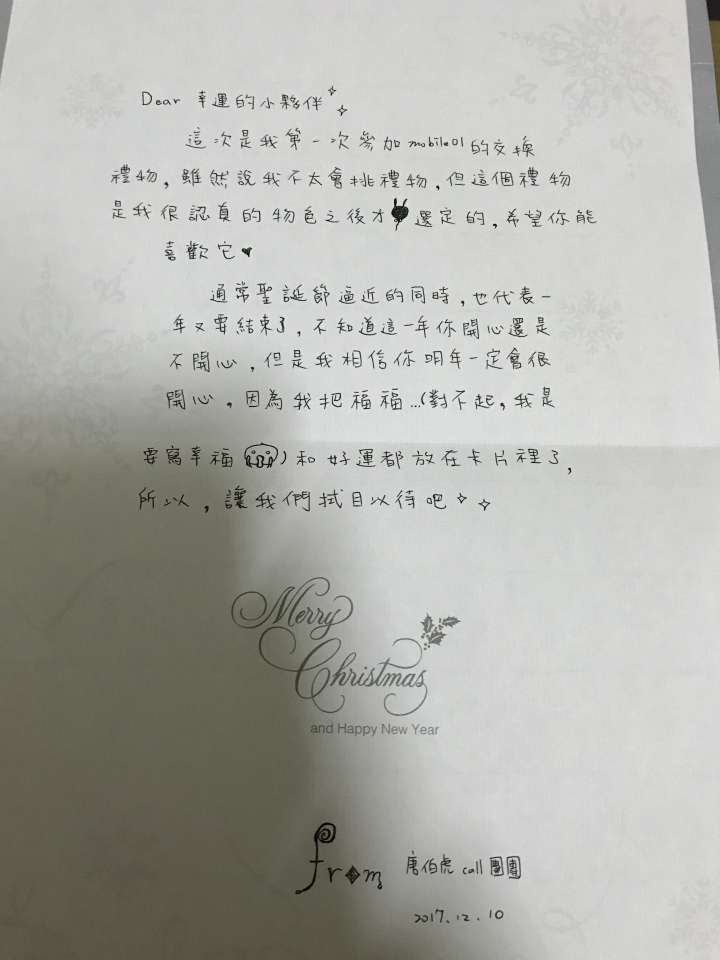 Dear 幸運的小夥伴
這次是我第一次參加mobile01的交換
禮物，雖然說我不太會挑禮物，但這個禮物
是我很認真的物色之後才選定的，希望你能
喜歡它♥
通常聖誕節逼近的同時，也代表一
年又要結束了，不知道這一年你開心還是
不開心，但是我相信你明年一定會很
開心，因為我把福福...(對不起，我是
要寫幸福)和好運都放在卡片裡了，
所以，讓我們拭目以待吧
Merry
Christmas
and Happy New Year
from 唐伯虎call團團
2017.12.10